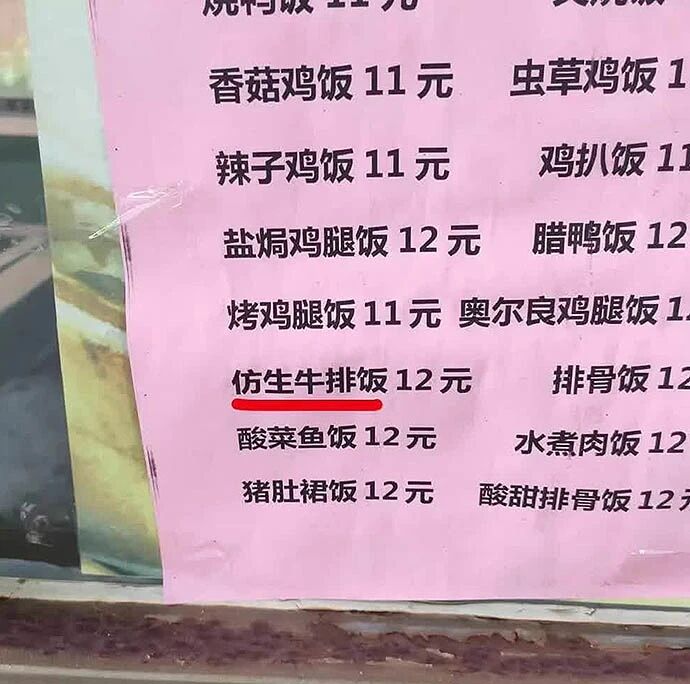 烧鸭饭 11 元
香菇鸡饭 11 元 虫草鸡饭 1
辣子鸡饭 11 元 鸡扒饭 11
盐焗鸡腿饭 12 元 腊鸭饭 12
烤鸡腿饭 11 元 奥尔良鸡腿饭 12
仿生牛排饭 12 元 排骨饭 12
酸菜鱼饭 12 元 水煮肉饭 12
猪肚裙饭 12 元 酸甜排骨饭 12 元